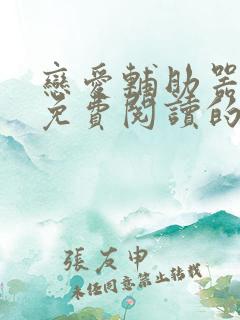 戀愛輔助器
免費閱讀的
張友申
未經同意禁止轉載